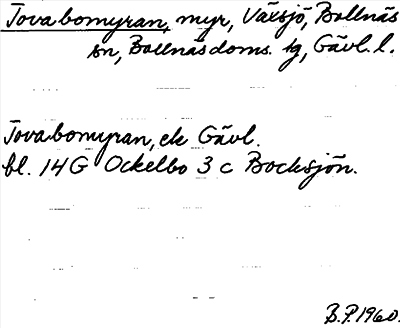 Tovabomyran, myr, Växsjö, Bollnäs
sn, Bollnäs doms. tg, Gävl. l.
Tovabomyran, ek Gävl.
bl. 14G Ockelbo 3 c Bocksjön.
B.P. 1960.